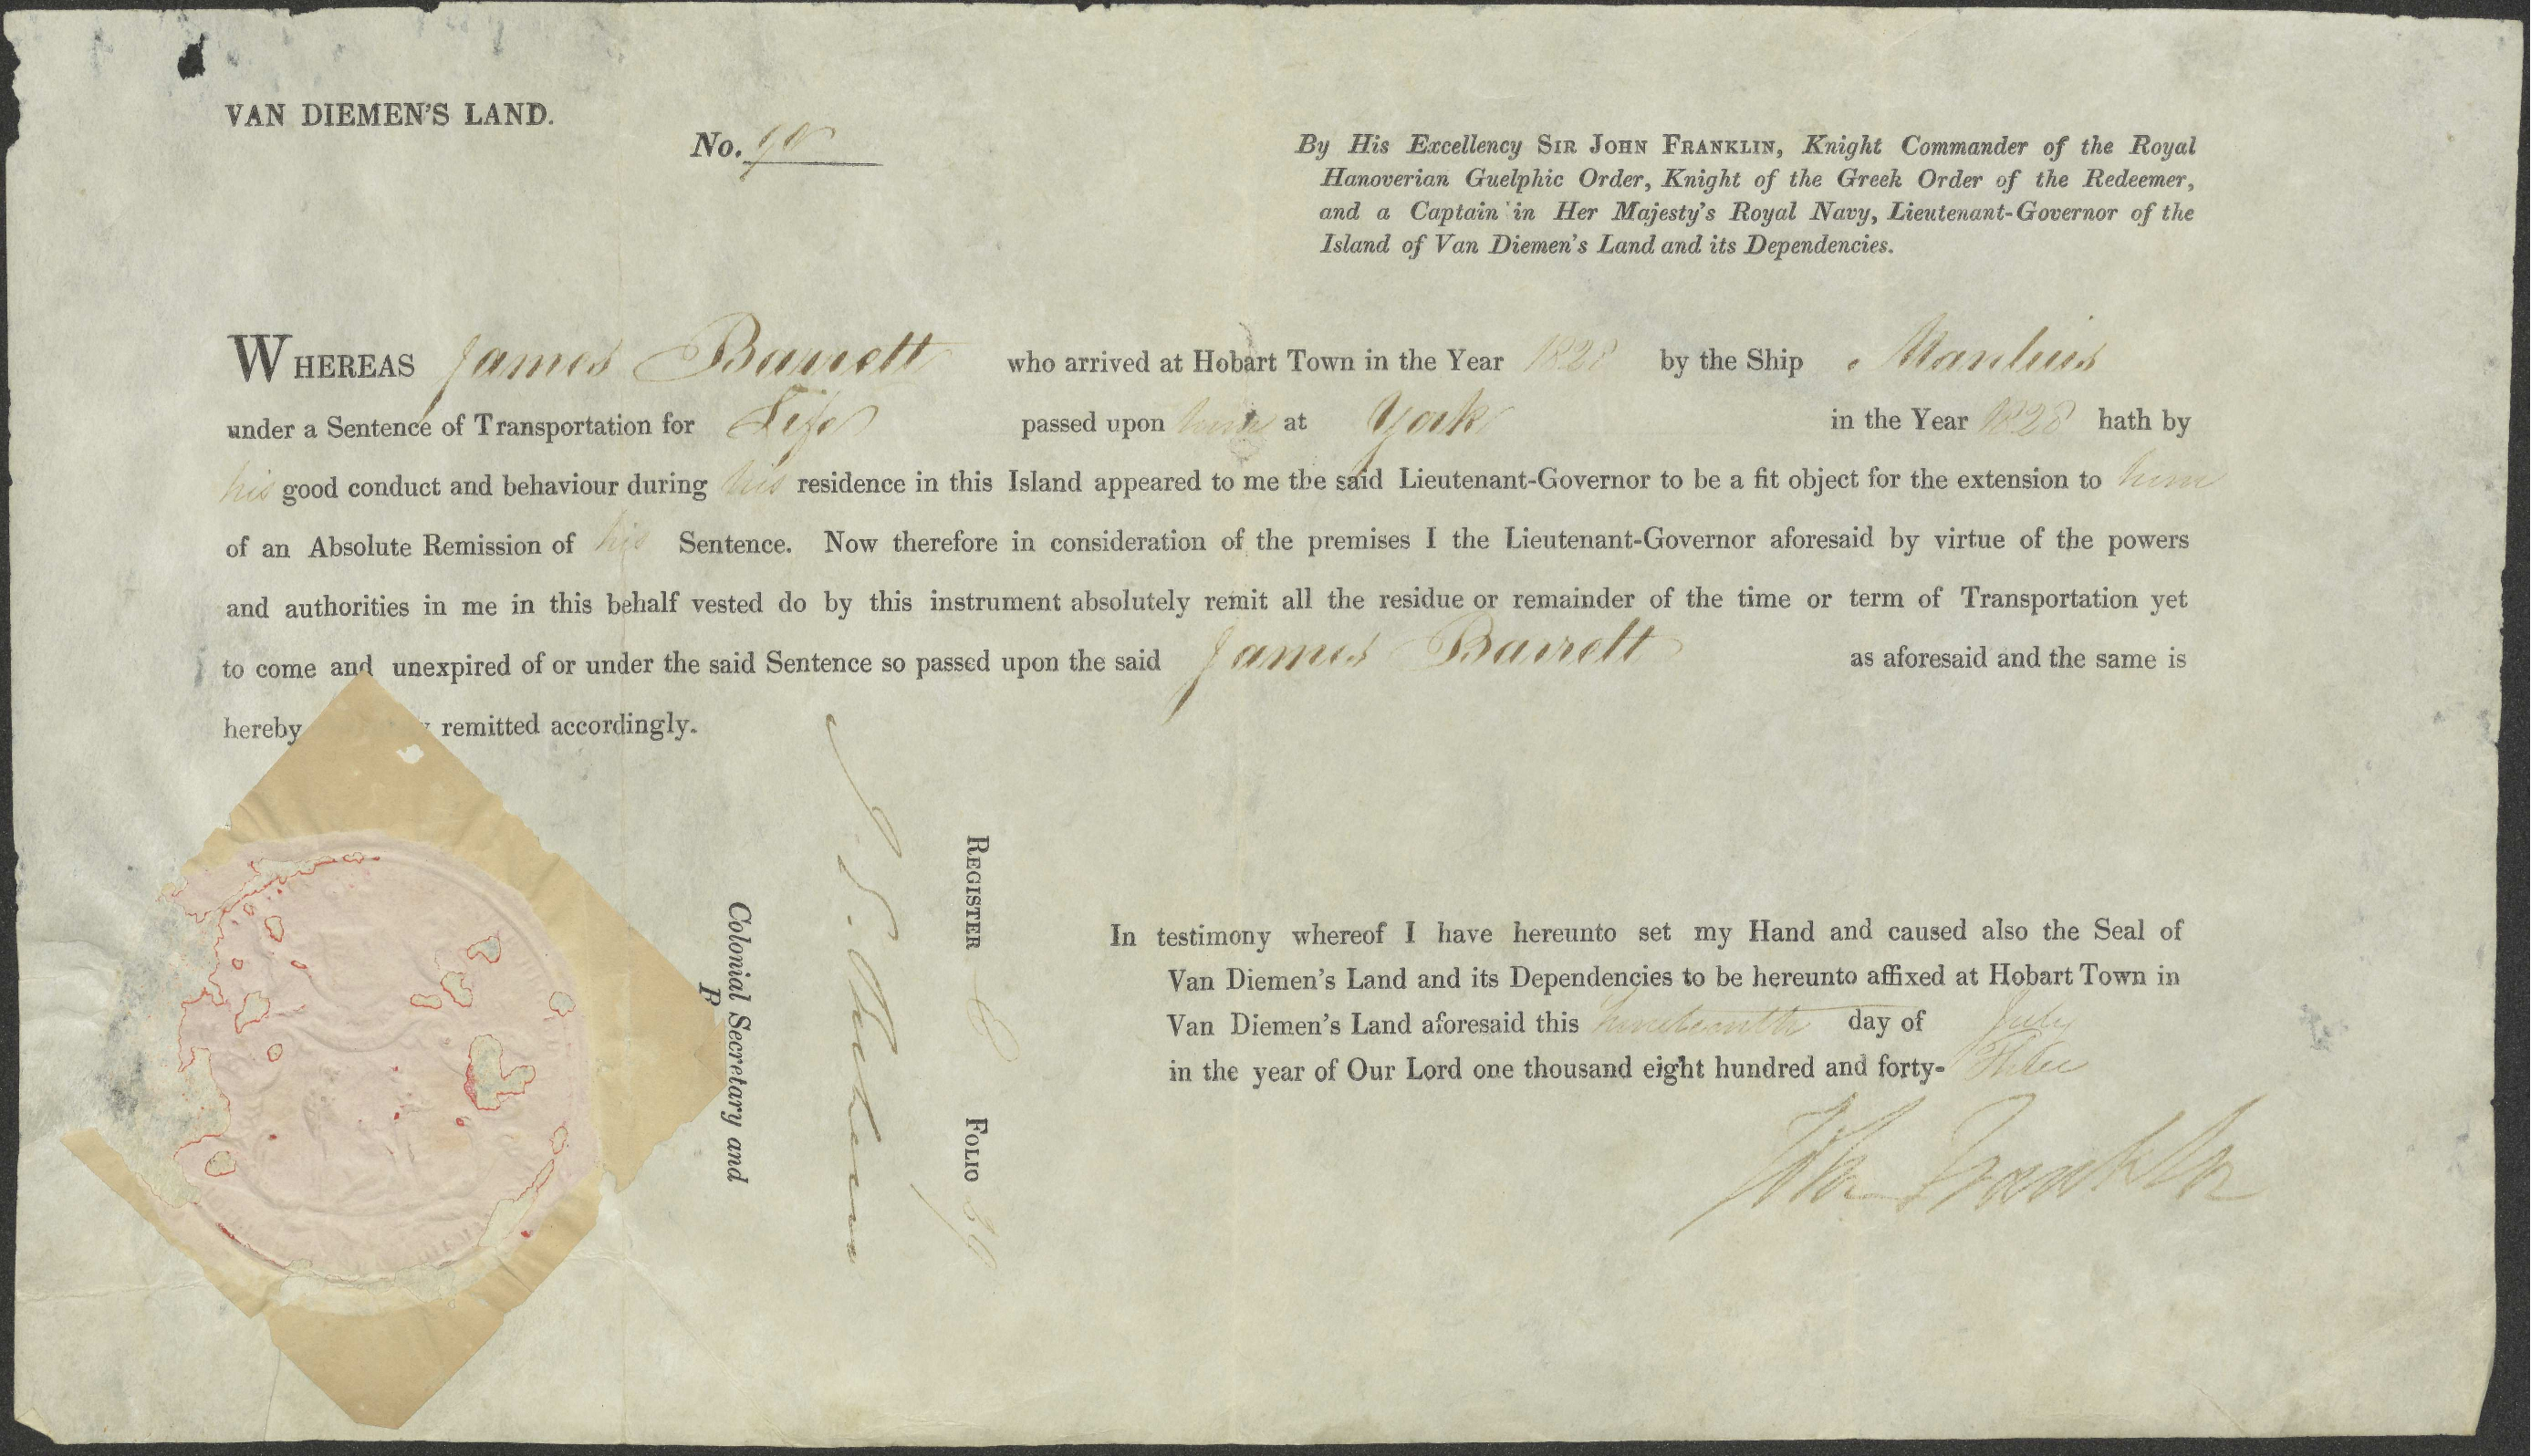 VAN DIEMEN'S LAND.
No. 90
By His Excellency SIR JOHN FRANKLIN, Knight Commander of the Royal
Hanoverian Guelphic Order, Knight of the Greek Order of the Redeemer,
and a Captain in Her Majesty's Royal Navy, Lieutenant-Governor of the
Island of Van Diemen's Land and its Dependencies.
WHEREAS James Barrett who arrived at Hobart Town in the Year 1828 by the Ship Manlius
under a Sentence of Transportation for Life passed upon him at York in the Year 1828 hath by
his good conduct and behaviour during his residence in this Island appeared to me the said Lieutenant-Governor to be a fit object for the extension to him
of an Absolute Remission of his Sentence. Now therefore in consideration of the premises I the Lieutenant-Governor aforesaid by virtue of the powers
and authorities in me in this behalf vested do by this instrument absolutely remit all the residue or remainder of the time or term of Transportation yet
to come and unexpired of or under the said Sentence so passed upon the said James Barrett as aforesaid and the same is
hereby remitted accordingly.
In testimony whereof I have hereunto set my Hand and caused also the Seal of
Van Diemen's Land and its Dependencies to be hereunto affixed at Hobart Town in
Van Diemen's Land aforesaid this nineteenth day of July
in the year of Our Lord one thousand eight hundred and forty- Three
John Franklin
REGISTER C FOLIO
Colonial Secretary and